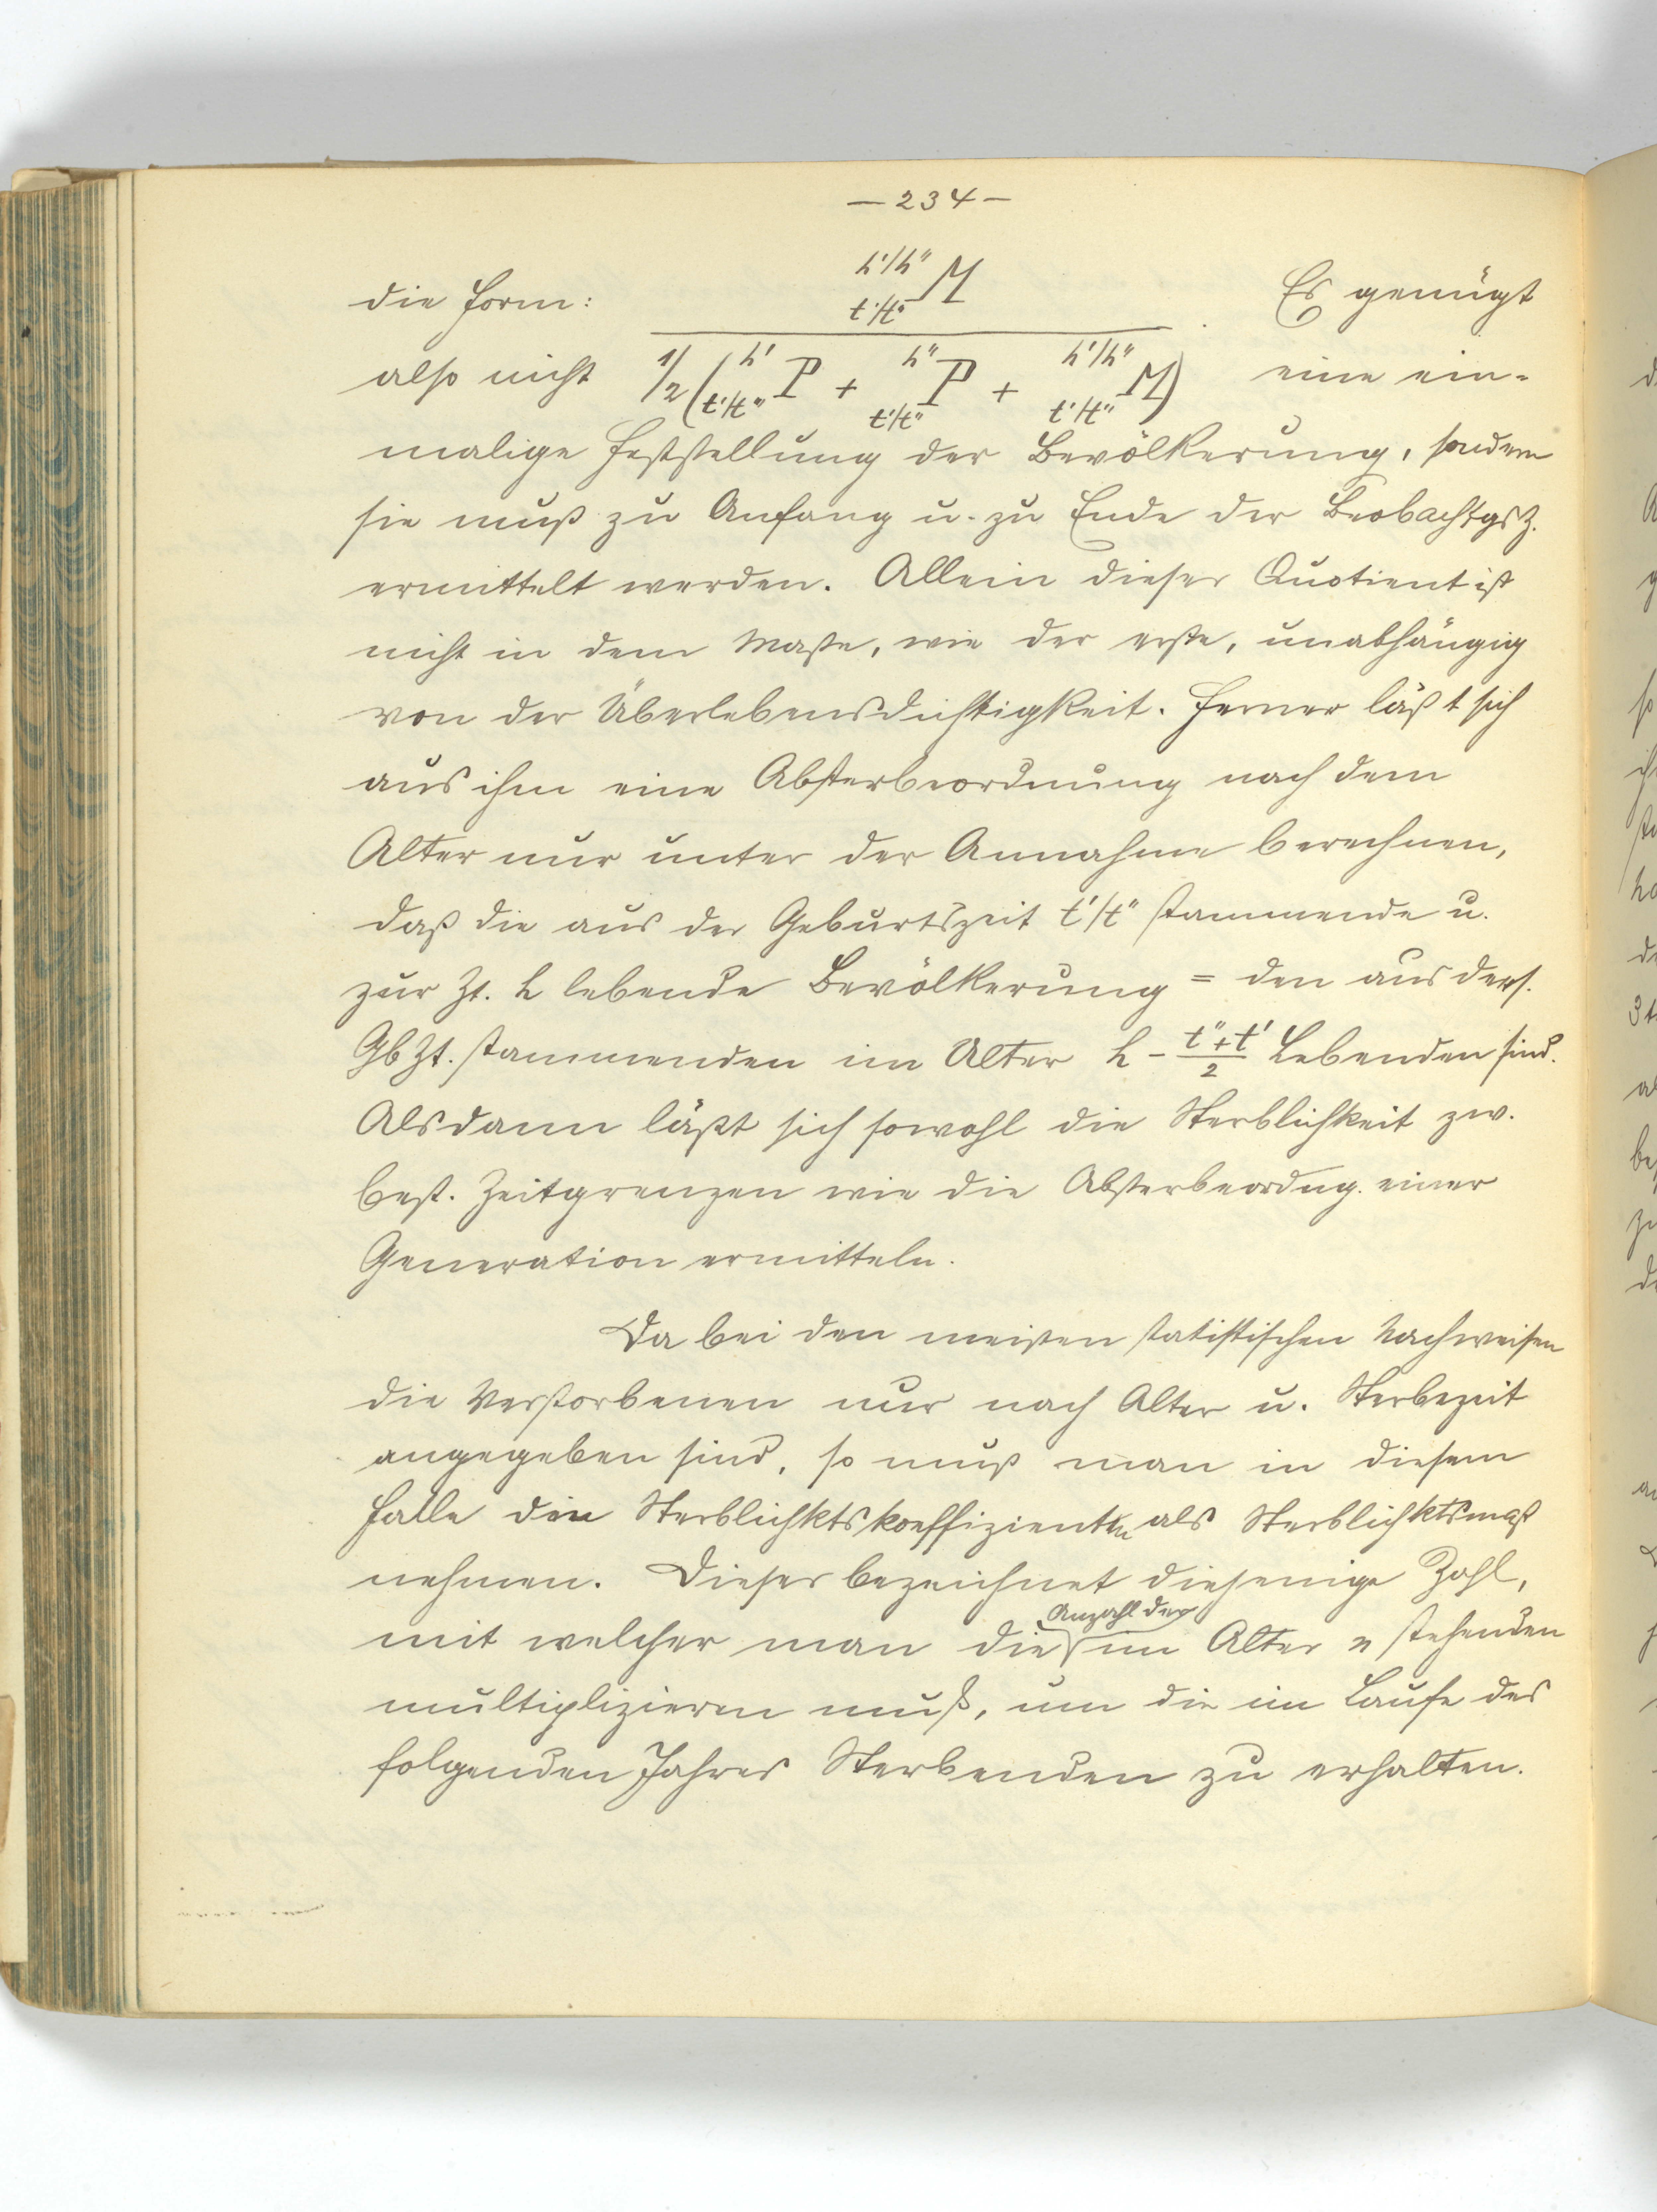 — 234 —
die Form: h'/h'' t'/t'' M Es genügt
also nicht 1/2 ( h' t'/t'' P + h'' t'/t'' P + h'/h'' t'/t'' M ) eine ein-
malige Feststellung der Bevölkerung, sondern
sie muß zu Anfang u. zu Ende der Beobachtgsz.
ermittelt werden. Allein dieser Quotient ist
nicht in dem Maße, wie der erste, unabhängig
von der Überlebensdichtigkeit. Ferner läßt sich
aus ihm eine Absterbeordnung nach dem
Alter nur unter der Annahme berechnen,
daß die aus der Geburtszeit t'/t'' stammende u.
zur Zt. h lebende Bevölkerung = den aus ders.
GbZt. stammenden im Alter h - (t''+t')/2 Lebenden sind.
Alsdann läßt sich sowohl die Sterblichkeit zw.
best. Zeitgrenzen wie die Absterbeordng. einer
Generation ermitteln.
Da bei den meisten statistischen Nachweisen
die Verstorbenen nur nach Alter u. Sterbezeit
angegeben sind, so muß man in diesem
Falle den Sterblichktskoeffizienten als Sterblichktsmaß
nehmen. Dieser bezeichnet diejenige Zahl,
mit welcher man die Anzahl der im Alter n stehenden
multiplizieren muß, um die im Laufe des
folgenden Jahres Sterbenden zu erhalten.